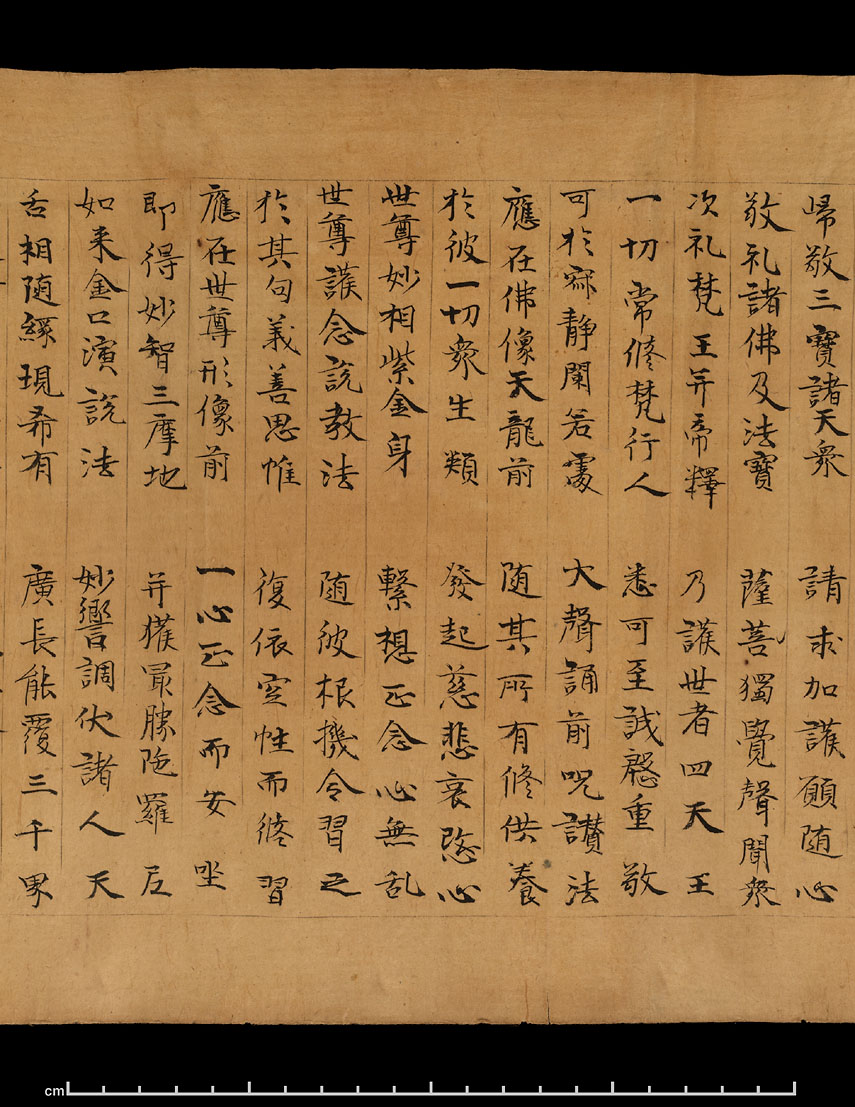 歸敬三寶諸天衆 請求加護願随心
敬礼諸佛及法寶 薩菩獨覺聲聞衆
次礼梵王并帝釋 乃護世者四天王
一切常修梵行人 悉可至誠慇重敬
可於寂静蘭若處 大聲誦前呪讃法
應在佛像天龍前 随其所有修供養
於彼一切衆生類 發起慈悲哀愍心
世尊妙相紫金身 繫想正念心無乱
世尊護念説教法 随彼根機令習之
於其句義善思惟 復依空性而修習
應在世尊形像前 一心正念而安坐
即得妙智三摩地 并獲冣勝陁羅尼
如来金口演説法 妙響調伏諸人天
舌相随緣現希有 廣長能覆三千界
cm